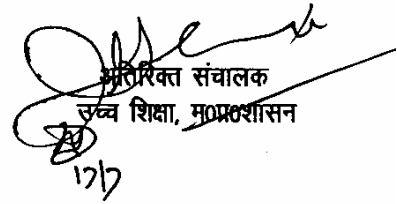 अतिरिक्त संचालक
उच्च शिक्षा, म०प्र०शासन
17/7